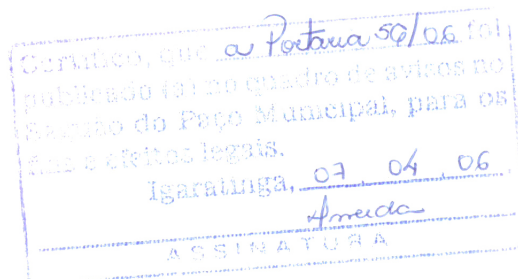 Certifico, que a Portaria 56/06 foi
publicado (a) no quadro de avisos no
Saguão do Paço Municipal, para os
fins e efeitos legais.
Igaratinga, 07 . 04 . 06
Almeida
ASSINATURA